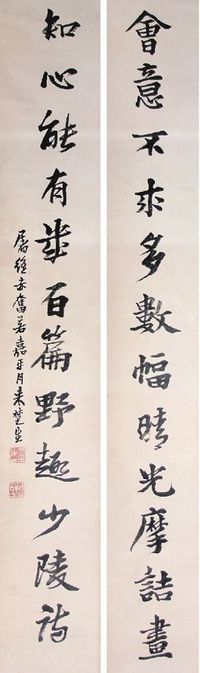 會意不求多數幅晴光摩詰畫
知心能有幾百篇野趣少陵詩
屠維赤奮若嘉平月來楚生